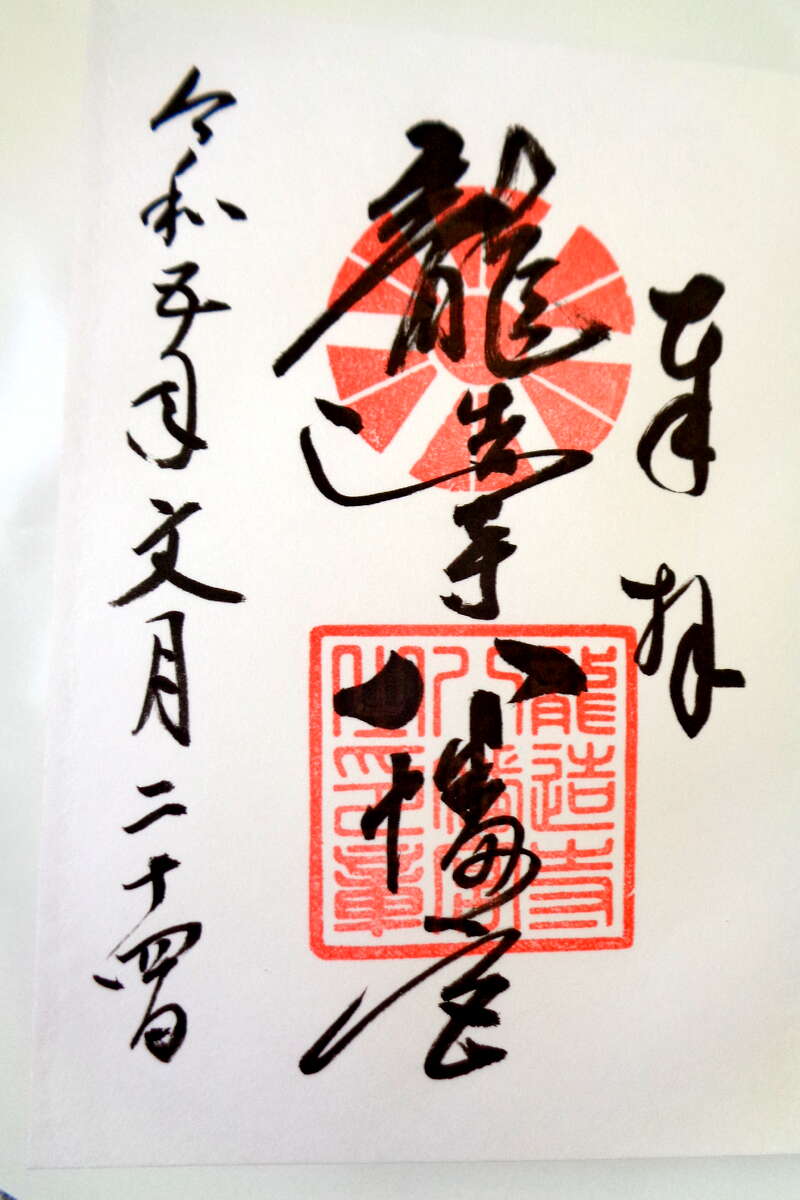 奉拝
龍造寺八幡宮
龍造寺
八幡宮
之印章
令和五年文月二十四日